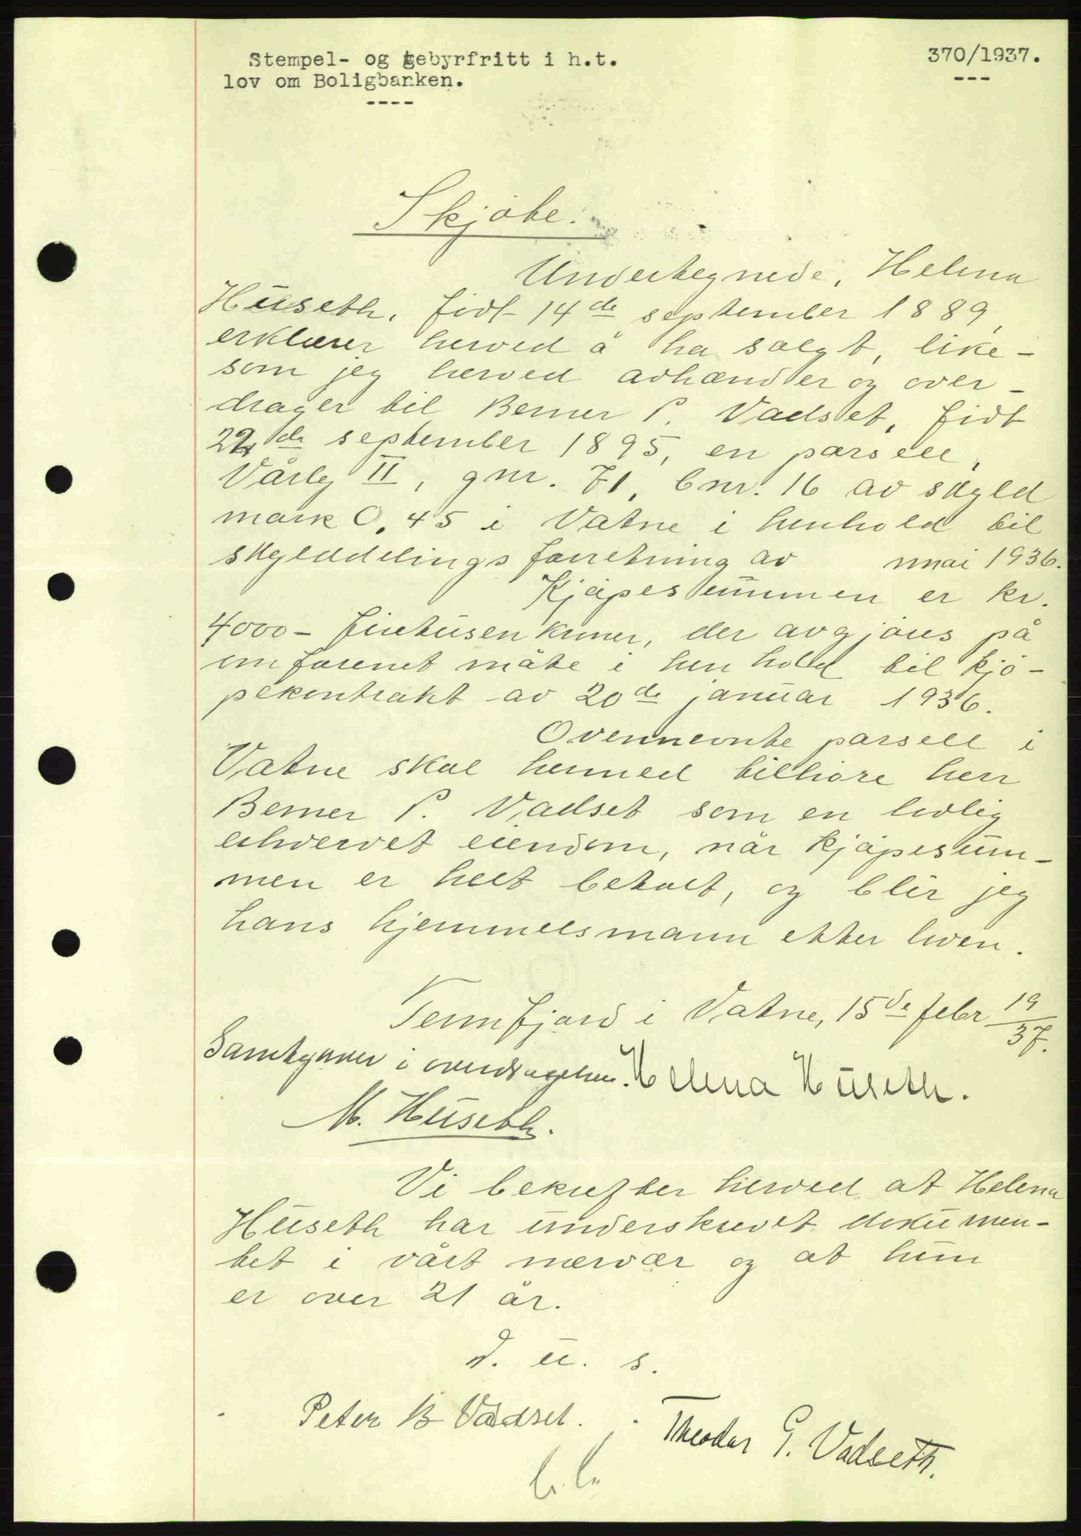 Stempel- og gebyrfritt i h.t.
lov om Boligbanken.
----
370/1937.
---
Skjøte.
Undertegnede, Helena
Huseth, født 14de september 1889,
erklærer herved å ha solgt, like-
som jeg herved avhænder og over-
drager til Berner P. Vadset, født
22de september 1895, en parsell,
Vårly II, gnr. 71, bnr. 16 av skyld
mark 0,45 i Vatne i henhold til
skylddelingsforretning av mai 1936.
Kjøpesummen er kr.
4000- firetusen kroner, der avgjøres på
omforenet måte i henhold til kjø-
pekontrakt av 20de januar 1936.
Ovennevnte parsell i
Vatne skal hermed tilhøre herr
Berner P. Vadset som en lovlig
erhvervet eiendom, når kjøpesum-
men er helt betalt, og blir jeg
hans hjemmelsmann efter loven.
Tennfjord i Vatne, 15de febr 19/37.
Samtykker i overdragelsen. Helena Huseth.
M. Huseth.
Vi bekrefter herved at Helena
Huseth har underskrevet dokumen-
tet i vårt nærvær og at hun
er over 21 år.
D. u. s.
Peter B Vadset. Theodor G. Vadseth.